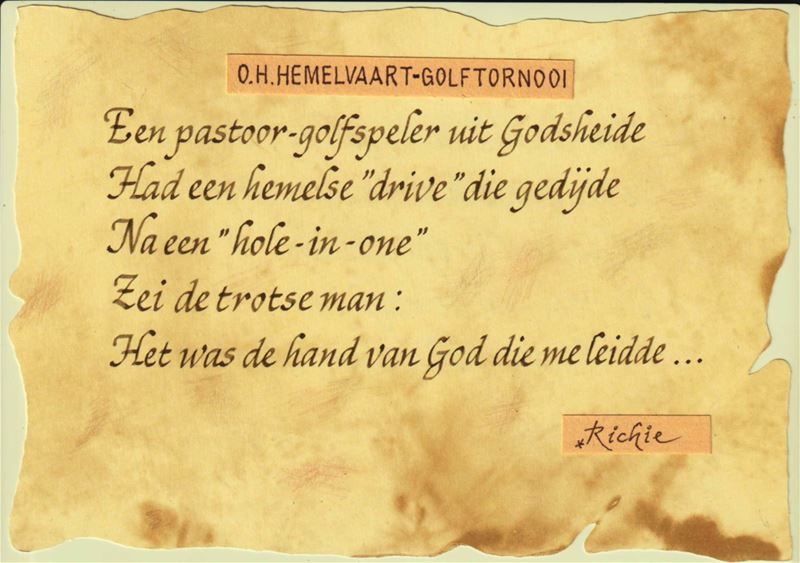 O.H.HEMELVAART-GOLFTORNOOI
Een pastoor-golfspeler uit Godsheide
Had een hemelse "drive" die gedijde
Na een "hole-in-one"
Zei de trotse man :
Het was de hand van God die me leidde ...
*Richie